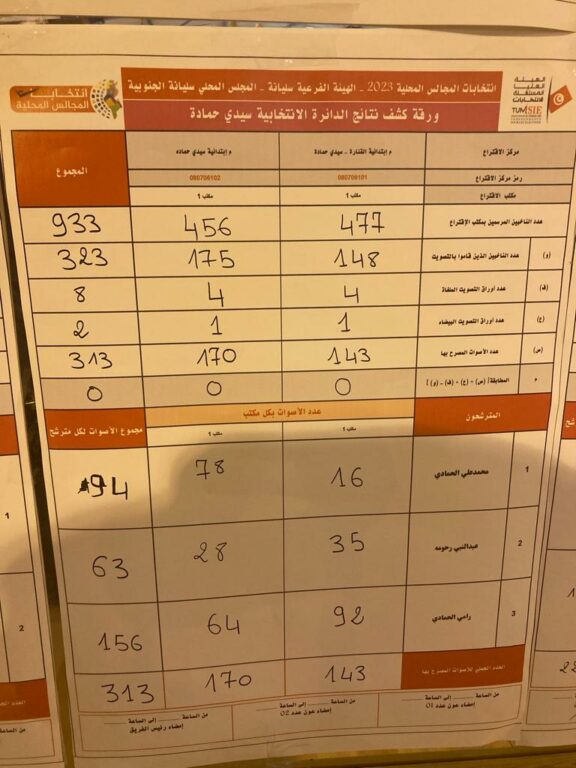 انتخابات المجالس المحلية 2023 - الهيئة الفرعية سليانة - المجلس المحلي سليانة الجنوبية
ورقة كشف نتائج الدائرة الانتخابية سيدي حمادة
الهيئة العليا المستقلة للانتخابات
انتخابات المجالس المحلية
مركز الاقتراع م إبتدائية القنارة - سيدي حمادة م إبتدائية سيدي حماده المجموع
رمز مركز الاقتراع 080706101 080706102
مكتب الاقتراع مكتب 1 مكتب 1
عدد الناخبين المرسمين بمكتب الإقتراع 477 456 933
(و) عدد الناخبين الذين قاموا بالتصويت 148 175 323
(ف) عدد أوراق التصويت الملغاة 4 4 8
(ع) عدد أوراق التصويت البيضاء 1 1 2
(س) عدد الأصوات المصرح بها 143 170 313
م المطابقة[ (س) + (ع) + (ف) - (و) ] 0 0 0
المترشحون عدد الأصوات بكل مكتب مجموع الأصوات لكل مترشح
مكتب 1 مكتب 1
1 محمدعلي الحمادي 16 78 94
2 عبدالنبي رحومه 35 28 63
3 رامي الحمادي 92 64 156
العدد الجملي للأصوات المصرح بها 143 170 313
من الساعة .......... إلى الساعة .......... من الساعة .......... إلى الساعة .......... من الساعة .......... إلى الساعة ..........
إمضاء عون عدد 01 إمضاء عون عدد 02 إمضاء رئيس الفريق